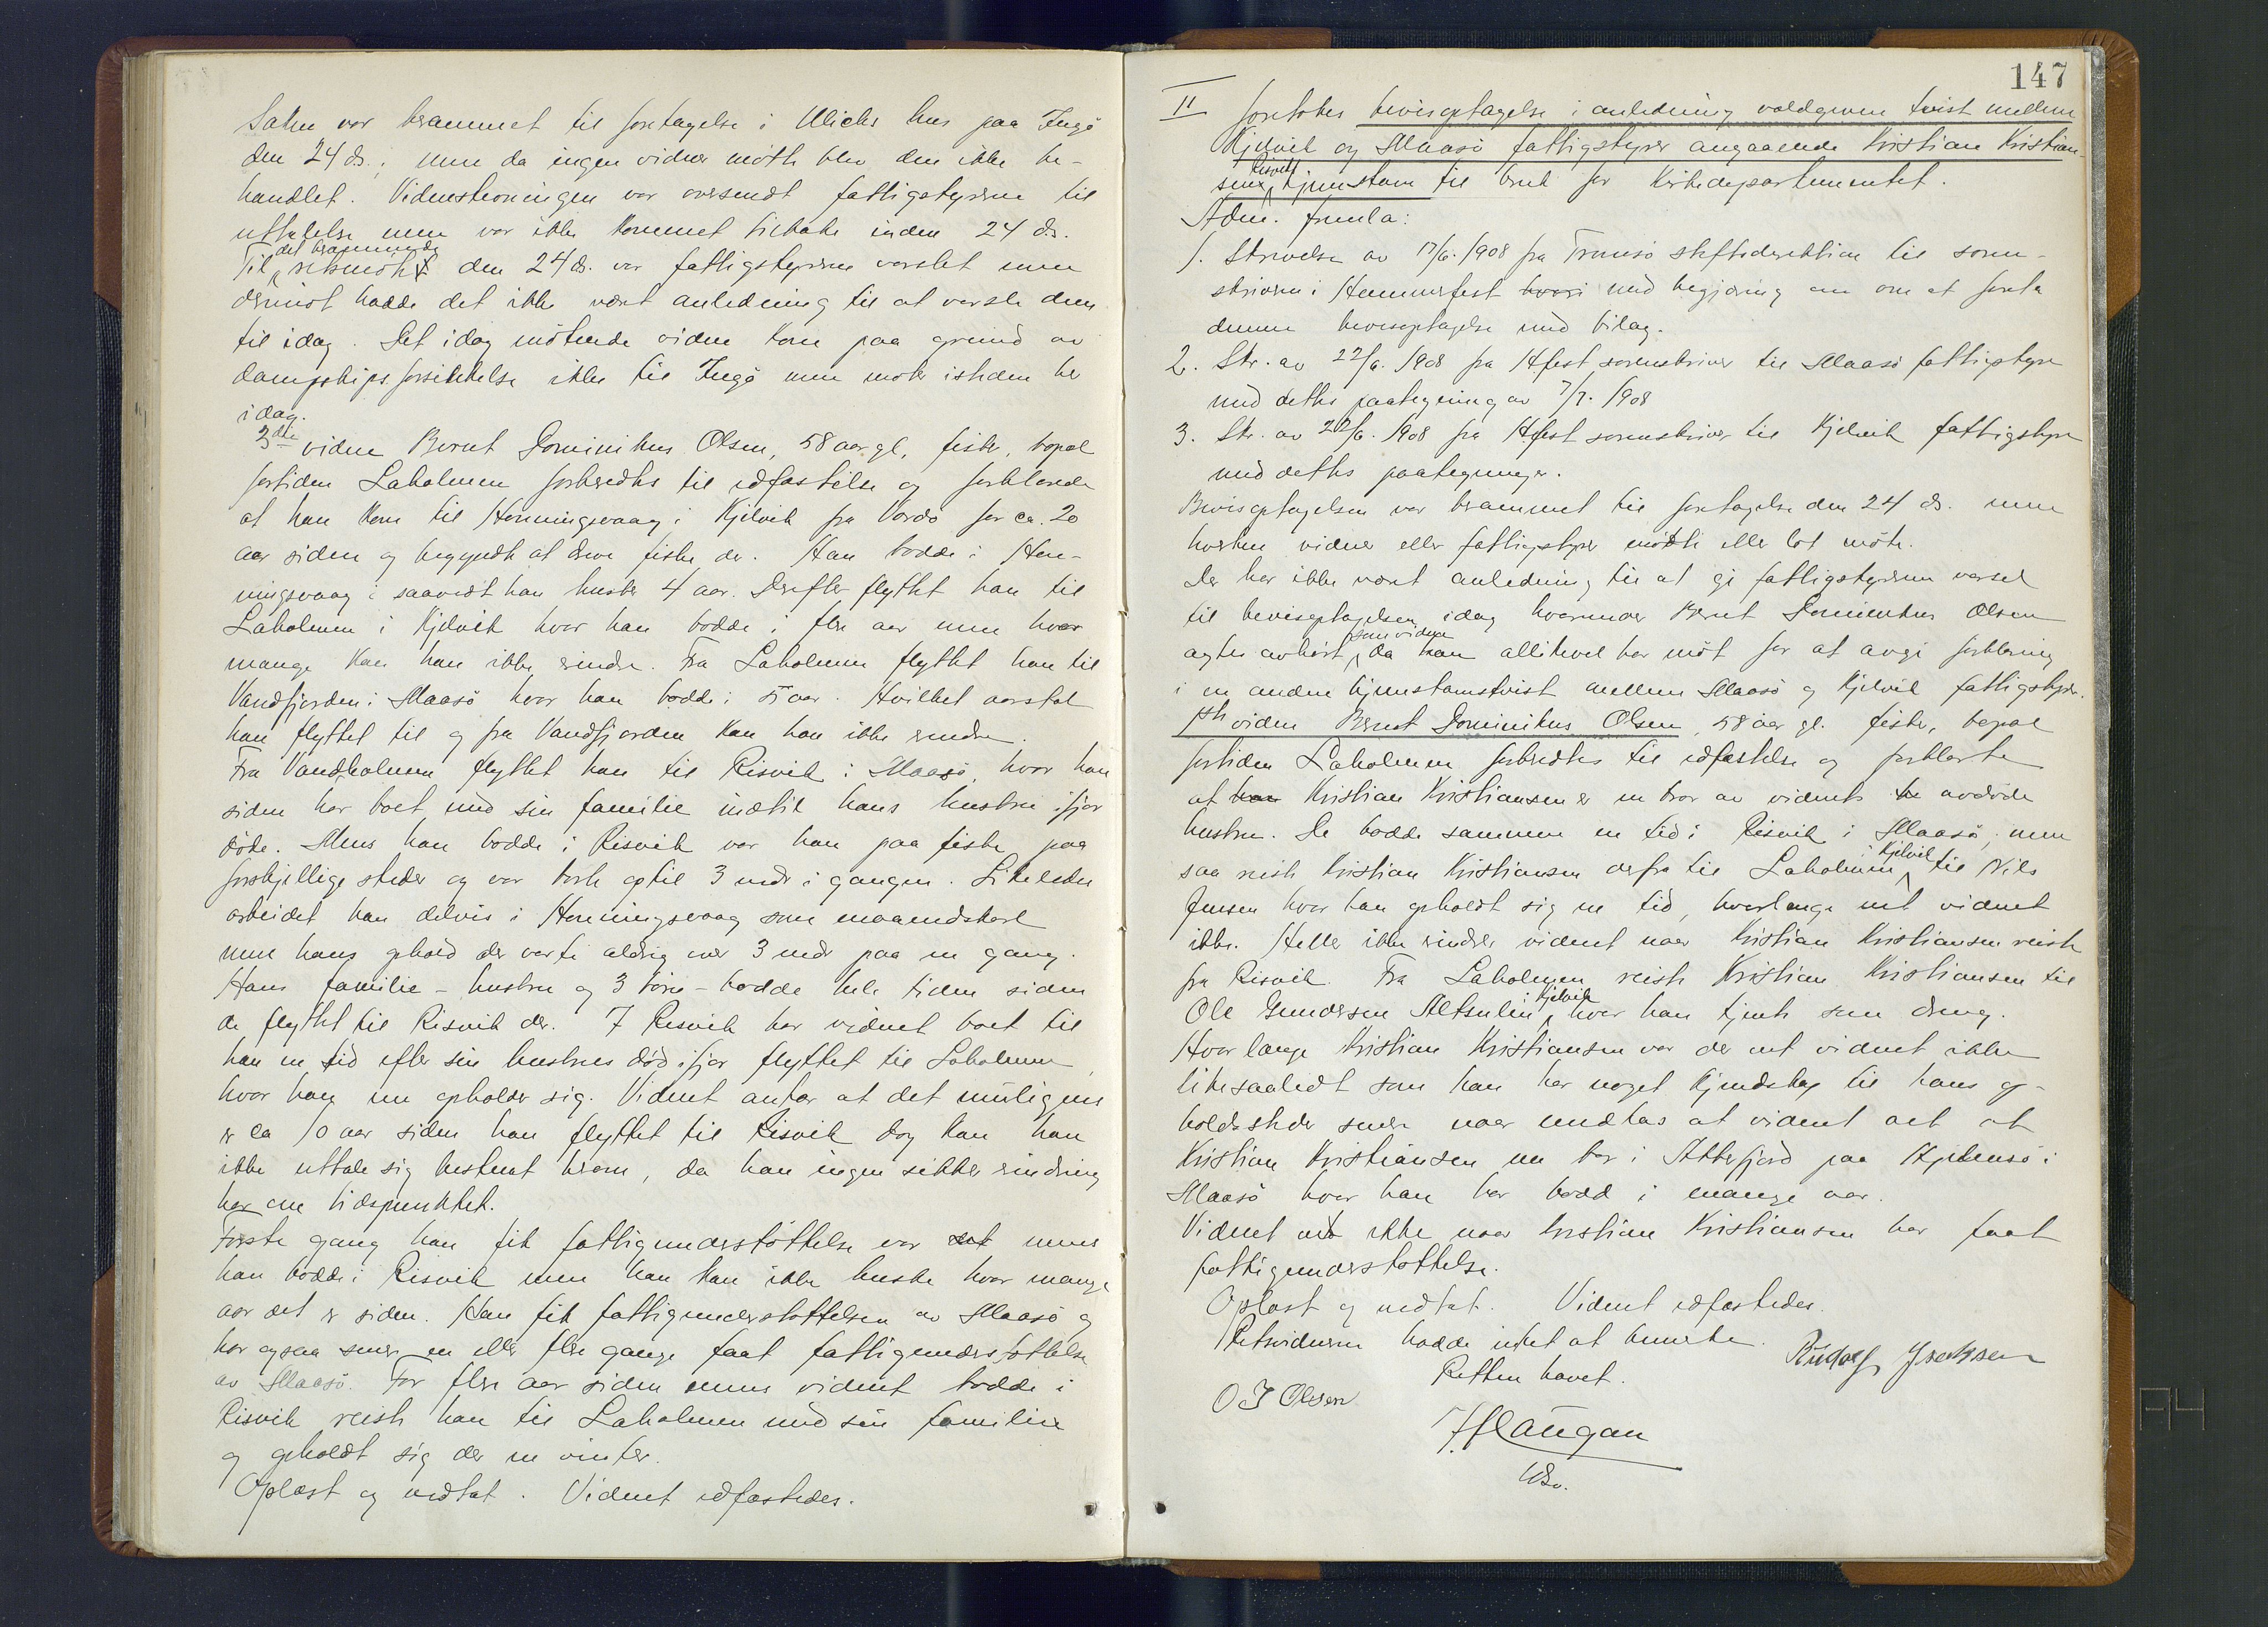 Saken var berammet til foretagelse i Ulichs hus paa Ingø
den 24 ds., men da ingen vidner møtte blev den ikke be-
handlet. Vidnestevningen var oversendt fattigstyrerne til
uttalelse men var ikke kommet tilbake inden 24 ds.
det berammede
Til retsmøtet den 24 ds. var fattigstyrerne varslet men
derimot hadde det ikke været anledning til at varsle dem
til idag. Det idag møtende vidne kom paa grund av
dampskips forsinkelse ikke til Ingø men møter isteden her
idag.
3dte vidne Bernt Dominikus Olsen, 58 aar gl, fisker, bopæl
fortiden Laholmen forberedtes til edfæstelse og forklarede
at han kom til Honningsvaag i Kjelvik fra Vardø for ca. 20
aar siden og begyndte at drive fiske der. Han bodde i Hon-
ningsvaag i saavidt han husker 4 aar. Derefter flyttet han til
Laholmen i Kjelvik hvor han bodde i flere aar men hvor
mange kan han ikke erindre. Fra Laholmen flyttet han til
Vandfjorden i Maasø hvor han bodde i 5 aar. Hvilket aarstal
han flyttet til og fra Vandfjorden kan han ikke erindre.
Fra Vandholmen flyttet han til Risvik i Maasø, hvor han
siden har boet med sin familie indtil hans hustru ifjor
døde. Mens han bodde i Risvik var han paa fiske paa
forskjellige steder og var borte optil 3 mdr i gangen. Likeledes
arbeidet han delvis i Honningsvaag som maanedskarl
men hans ophold der varte aldrig over 3 mdr paa en gang.
Hans familie - hustru og 3 børn - bodde hele tiden siden
de flyttet til Risvik der. I Risvik har vidnet boet til
han en tid efter sin hustrus død ifjor flyttet til Laholmen,
hvor han nu opholder sig. Vidnet antar at det muligens
er ca 10 aar siden han flyttet til Risvik dog kan han
ikke uttale sig bestemt herom, da han ingen sikker erindring
har om tidspunktet.
Første gang han fik fattigunderstøttelse var det mens
han bodde i Risvik men han kan ikke huske hvor mange
aar det er siden. Han fik fattigunderstøttelsen av Maasø og
har ogsaa senere en eller flere gange faat fattigunderstøttelse
av Maasø. For flere aar siden mens vidnet bodde i
Risvik reiste han til Laholmen med sin familie
og opholdt sig der en vinter.
Oplæst og vedtat. Vidnet edfæstedes.
147
II foretokes bevisoptagelse i anledning voldgiven tvist mellem
Kjelvik og Maasø fattigstyrer angaaende Kristian Kristian-
Risvik
sens hjemstavn til bruk for Kirkedepartementet.
Adm. fremla:
1. Skrivelse av 17/6. 1908 fra Tromsø stiftsdirektion til soren-
skriveren i Hammerfest hvori med begjæring om om at foreta
denne bevisoptagelse med bilag.
2. Skr. av 22/6. 1908 fra Hfest sorenskriver til Maasø fattigstyre
med dettes paategning av 7/7. 1908
3. Skr. av 22/6. 1908 fra Hfest sorenskriver til Kjelvik fattigstyre
med dettes paategninger.
Bevisoptagelsen var berammet til foretagelse den 24 ds. men
hverken vidner eller fattigstyrer møtte eller lot møte.
Der har ikke været anledning til at gi fattigstyrerne varsel
til bevisoptagelsen idag hvorunder Bernt Dominikus Olsen
som vidne
agtes avhørt, da han allikevel har møtt for at avgi forklaring
i en anden hjemstamstvist mellem Maasø og Kjelvik fattigstyrer.
1ste vidne Bernt Dominikus Olsen, 58 aar gl. fisker, bopæl
fortiden Laholmen forberedtes til edfæstelse og forklarte
at han Kristian Kristiansen er en bror av vidnets be avdøde
hustru. De bodde sammen en tid i Risvik i Maasø, men
Kjelvik
saa reiste Kristian Kristiansen derfra til Laholmen til Nils
Jensen hvor han opholdt sig en tid, hvorlænge vet vidnet
ikke. Heller ikke erindrer vidnet naar Kristian Kristiansen reiste
fra Risvik. Fra Laholmen reiste Kristian Kristiansen til
i Kjelvik
Ole Gundersen Altsulen, hvor han tjente som dreng.
Hvor længe Kristian Kristiansen var der vet vidnet ikke
likesaalidt som han har noget kjendskap til hans op-
holdssteder senere naar undtas at vidnet vet at
Kristian Kristiansen nu bor i Akkerfjord paa Hjelmsø i
Maasø hvor han har bodd i mange aar.
Vidnet vet ikke naar Kristian Kristiansen har faat
fattigunderstøttelse.
Oplæst og vedtat. Vidnet edfæstedes.
Retsvidnerne hadde intet at bemerke.
Retten hævet.
Rudolf Isaksen
O J Olsen
J Haugan